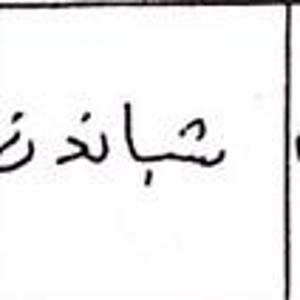 شباندز